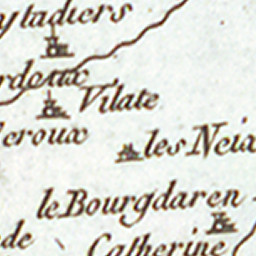 yladiers
rdeaux
Vilate
leroux
les Neix
le Bourgdaren
de
Catherine